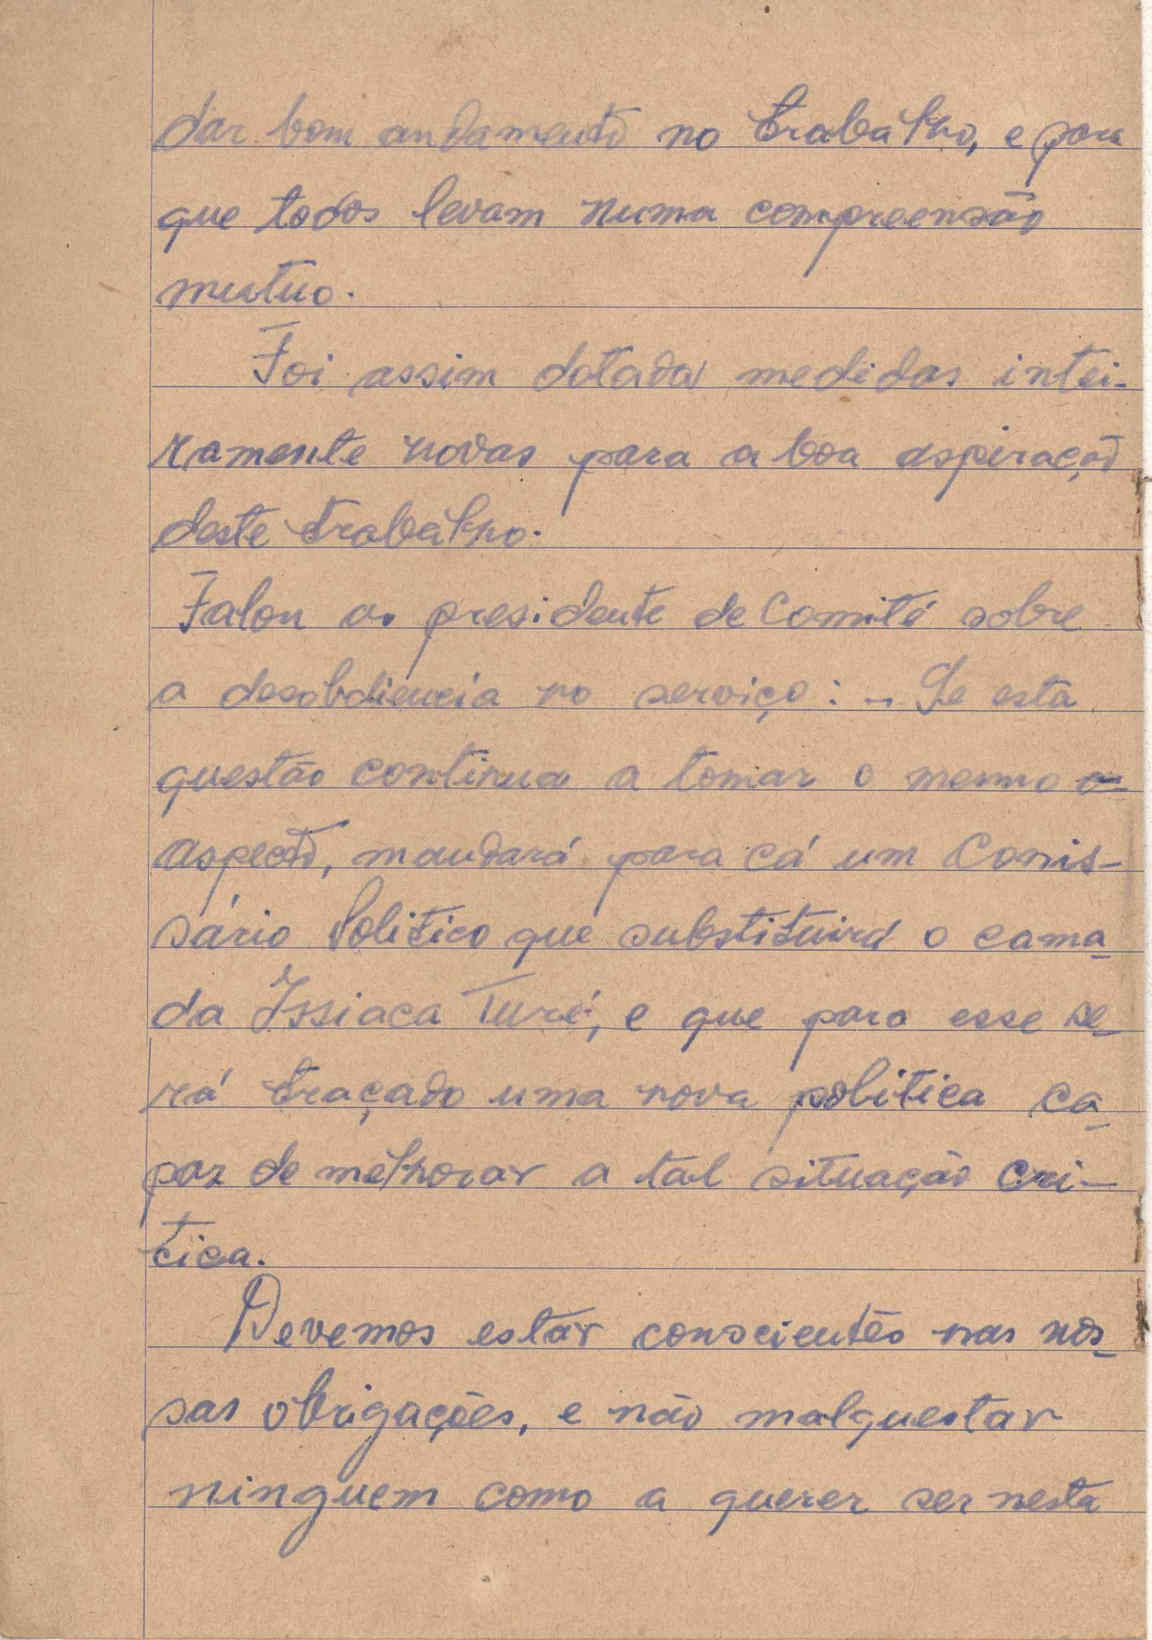 dar bom andamento no trabalho, e para
que todos levam numa compreensão
mutuo.
Foi assim dotada medidas intei-
ramente novas para a boa aspiração
deste trabalho.
Falou o presidente de Comité sobre
a desobdiencia no serviço: - Se esta
questão continua a tomar o mesmo
aspecto, mandará para cá um Comis-
sário Politico que substituirá o cama
da Issiaca Turé, e que para esse se-
rá traçado uma nova politica ca-
paz de melhorar a tal situação cri-
tica.
Devemos estar conscientes nas nos-
sas obrigações, e não malquestar
ninguem como a querer ser nesta